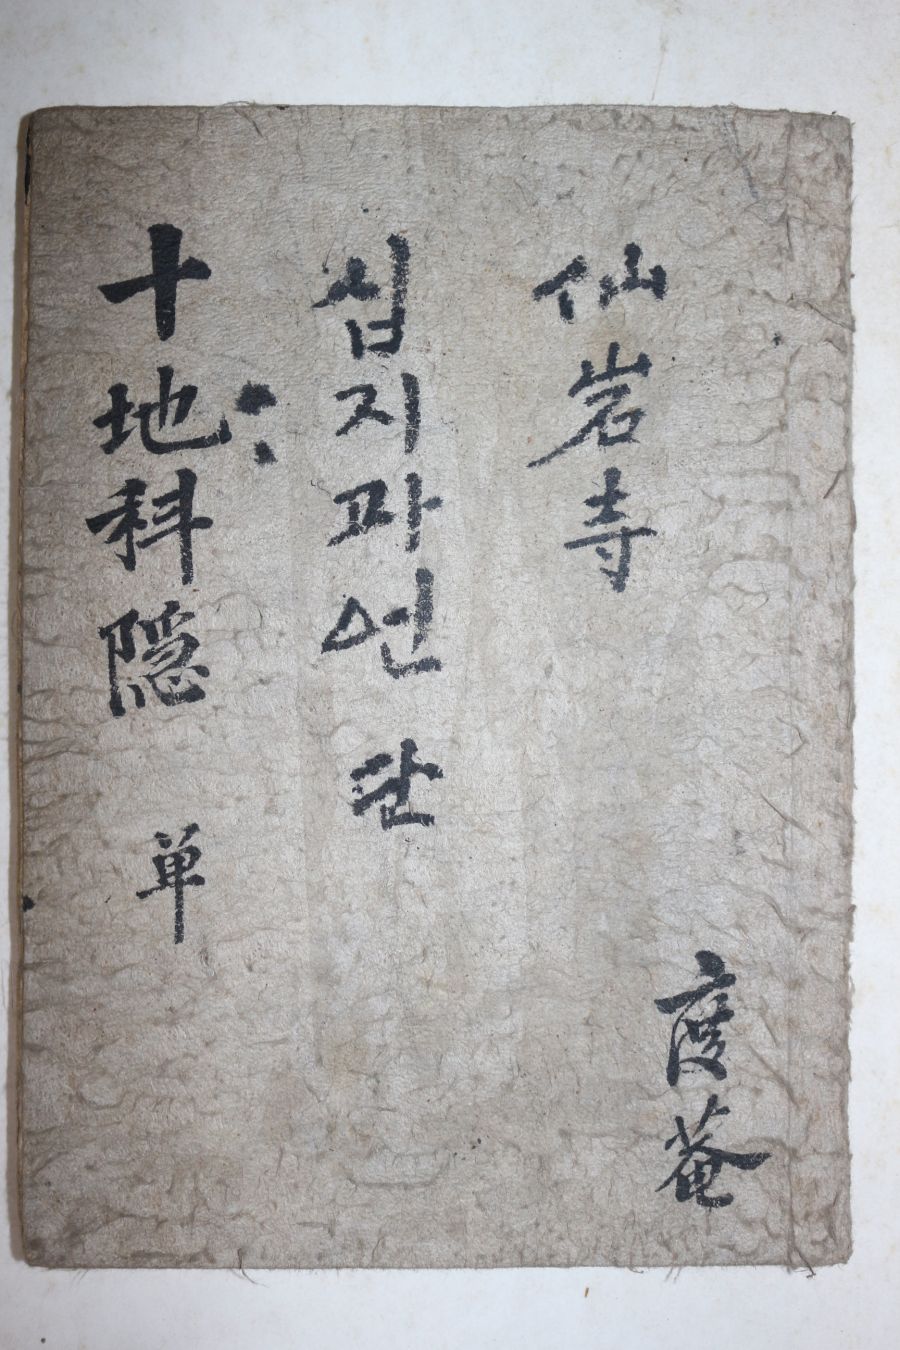 仙岩寺
度菴
십지과언 단
十地科隠 単